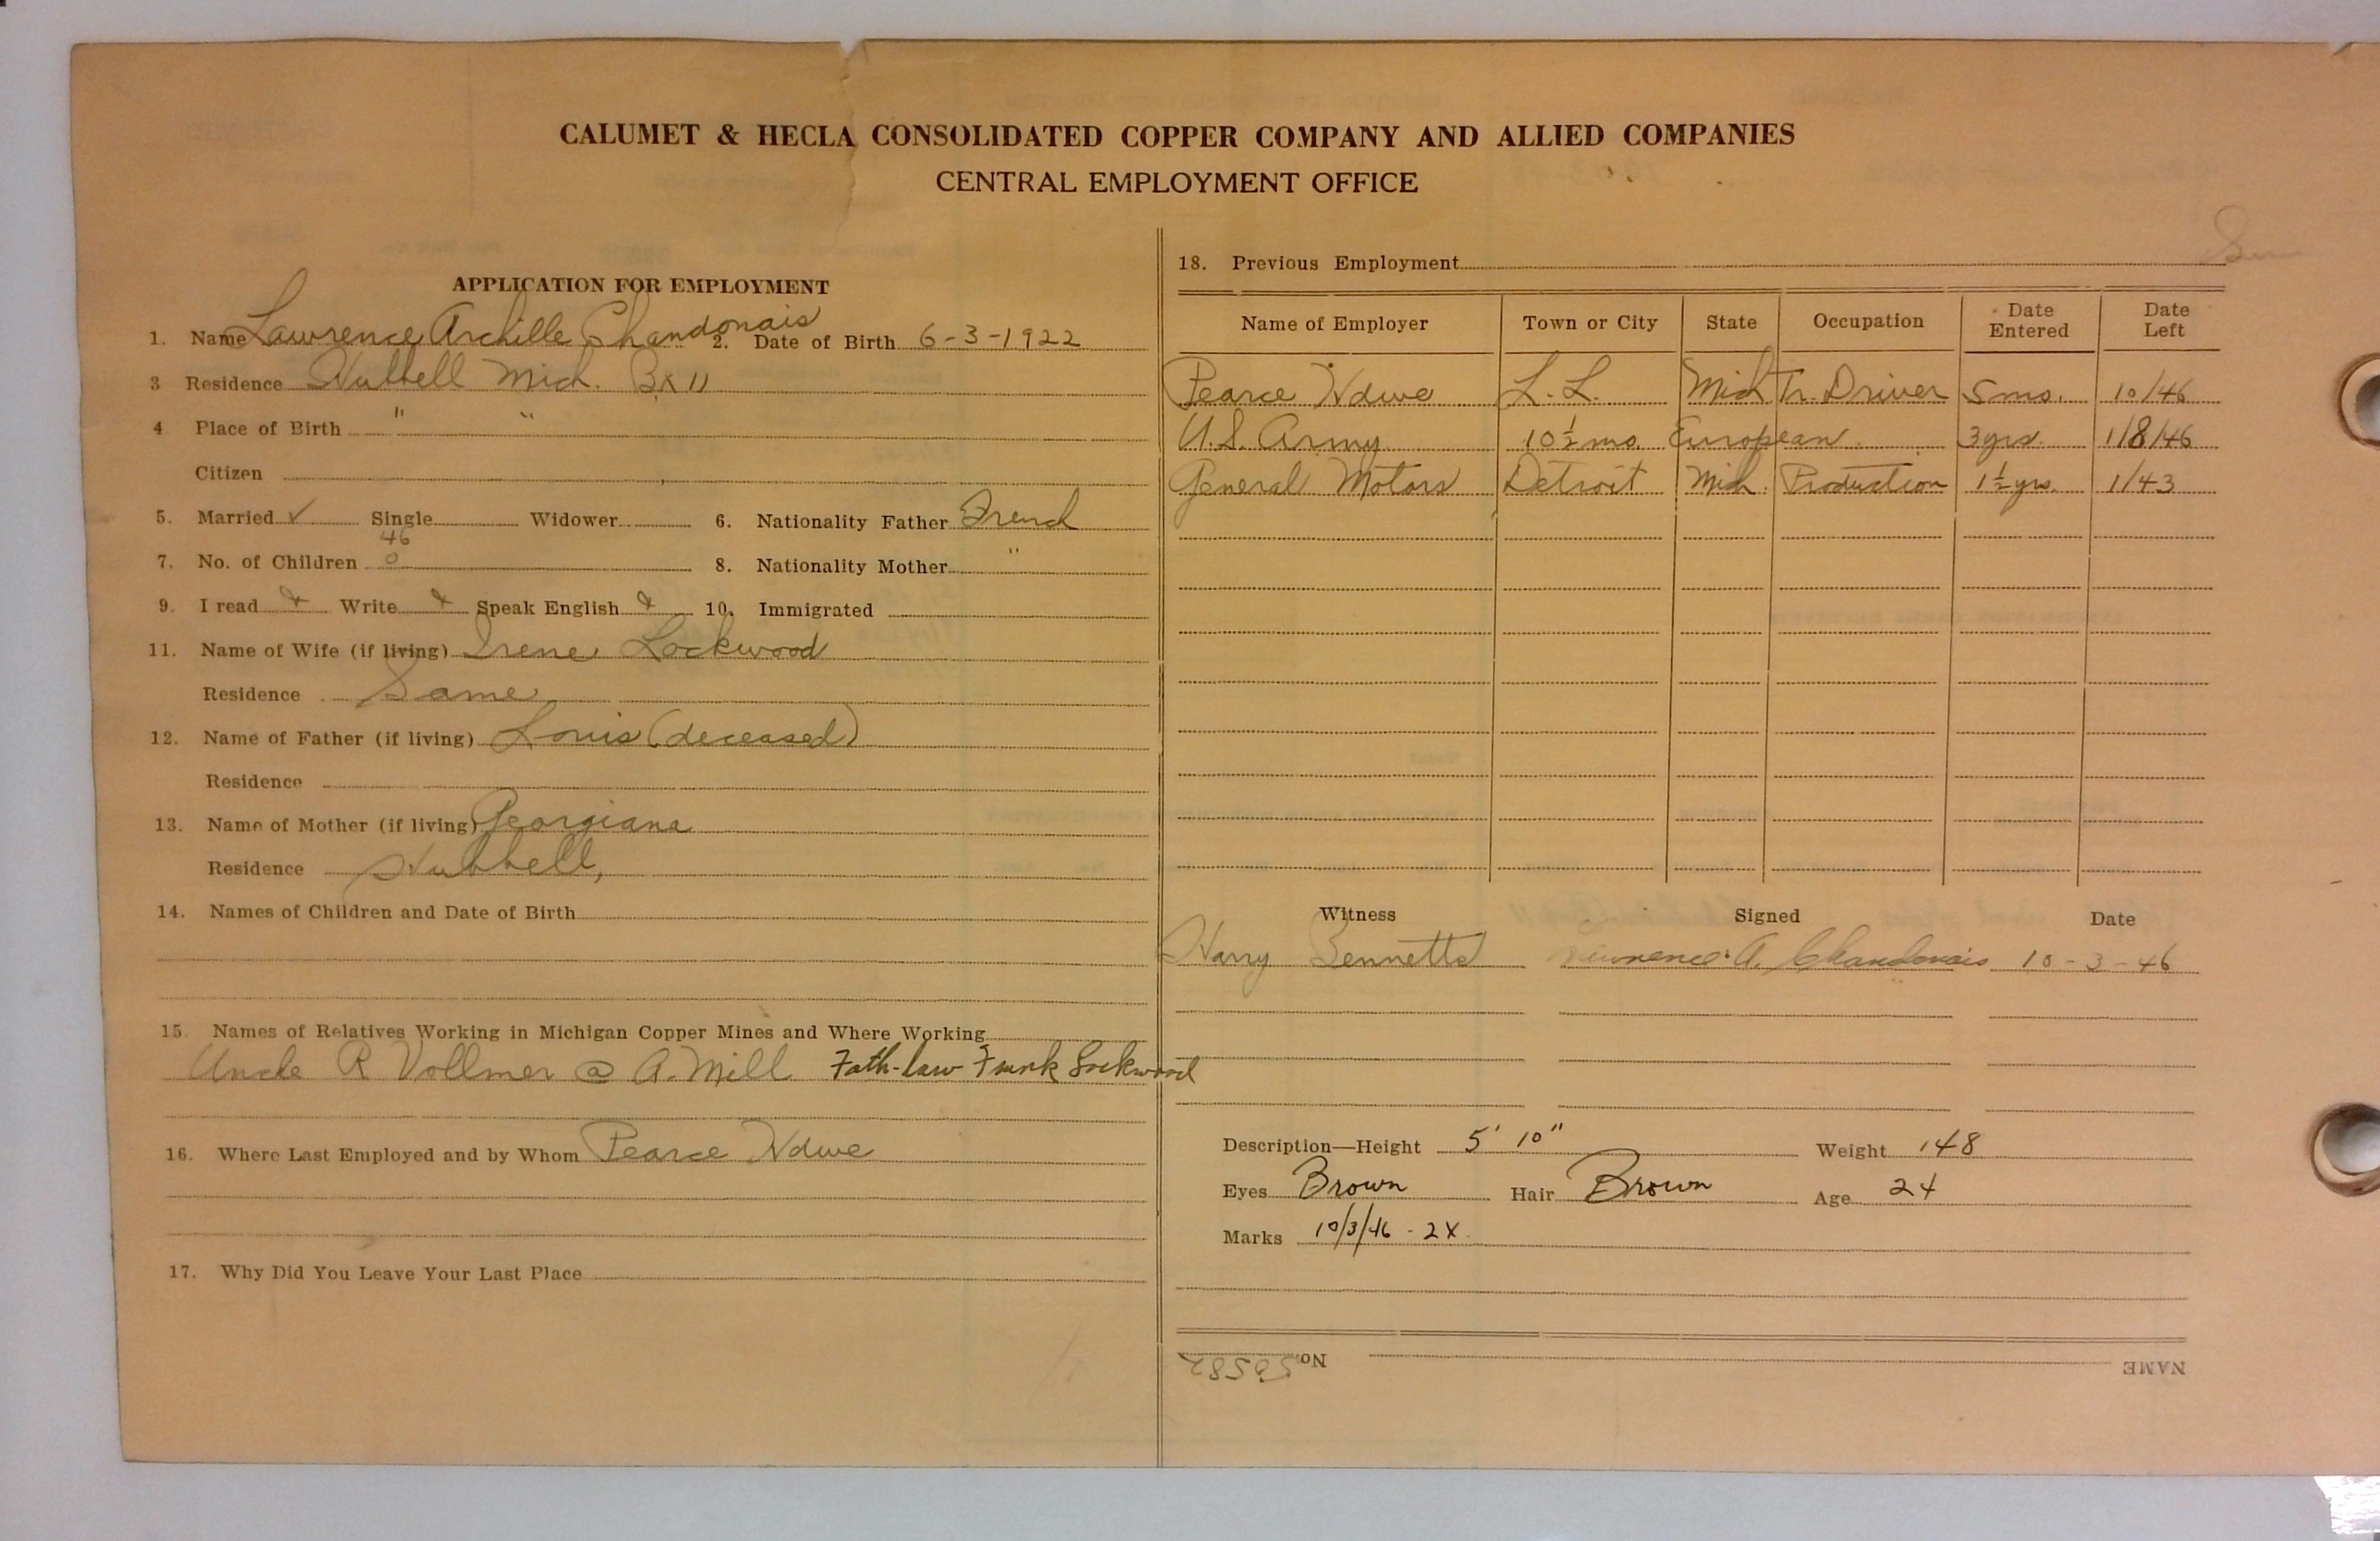 CALUMET & HECLA CONSOLIDATED COPPER COMPANY AND ALLIED COMPANIES
CENTRAL EMPLOYMENT OFFICE
APPLICATION FOR EMPLOYMENT
1. Name Lawrence Archille Chandonais 2. Date of Birth 6-3-1922
3 Residence Hubbell Mich. Bx 11
4 Place of Birth " "
Citizen
5. Married ✓ Single Widower 6. Nationality Father French
46
7. No. of Children 0 8. Nationality Mother "
9. I read x Write x Speak English x 10. Immigrated
11. Name of Wife (if living) Irene Lockwood
Residence Same
12. Name of Father (if living) Louis (deceased)
Residence
13. Name of Mother (if living) Georgiana
Residence Hubbell,
14. Names of Children and Date of Birth
15. Names of Relatives Working in Michigan Copper Mines and Where Working
Uncle R Vollmer @ A. Mill Fath-law Frank Lockwood
16. Where Last Employed and by Whom Pearce Hdwe
17. Why Did You Leave Your Last Place
18. Previous Employment
Name of Employer Town or City State Occupation Date Entered Date Left
Pearce Hdwe L.L. Mich Tr. Driver 5 mo. 10/46
U.S. Army 10½ mo. European 3 yrs. 1/8/46
General Motors Detroit Mich. Production 1½ yrs. 1/43
Witness Signed Date
Harry Bennetts Lawrence A. Chandonais 10-3-46
Description—Height 5' 10" Weight 148
Eyes Brown Hair Brown Age 24
Marks 10/3/46 - 2X
No. NAME